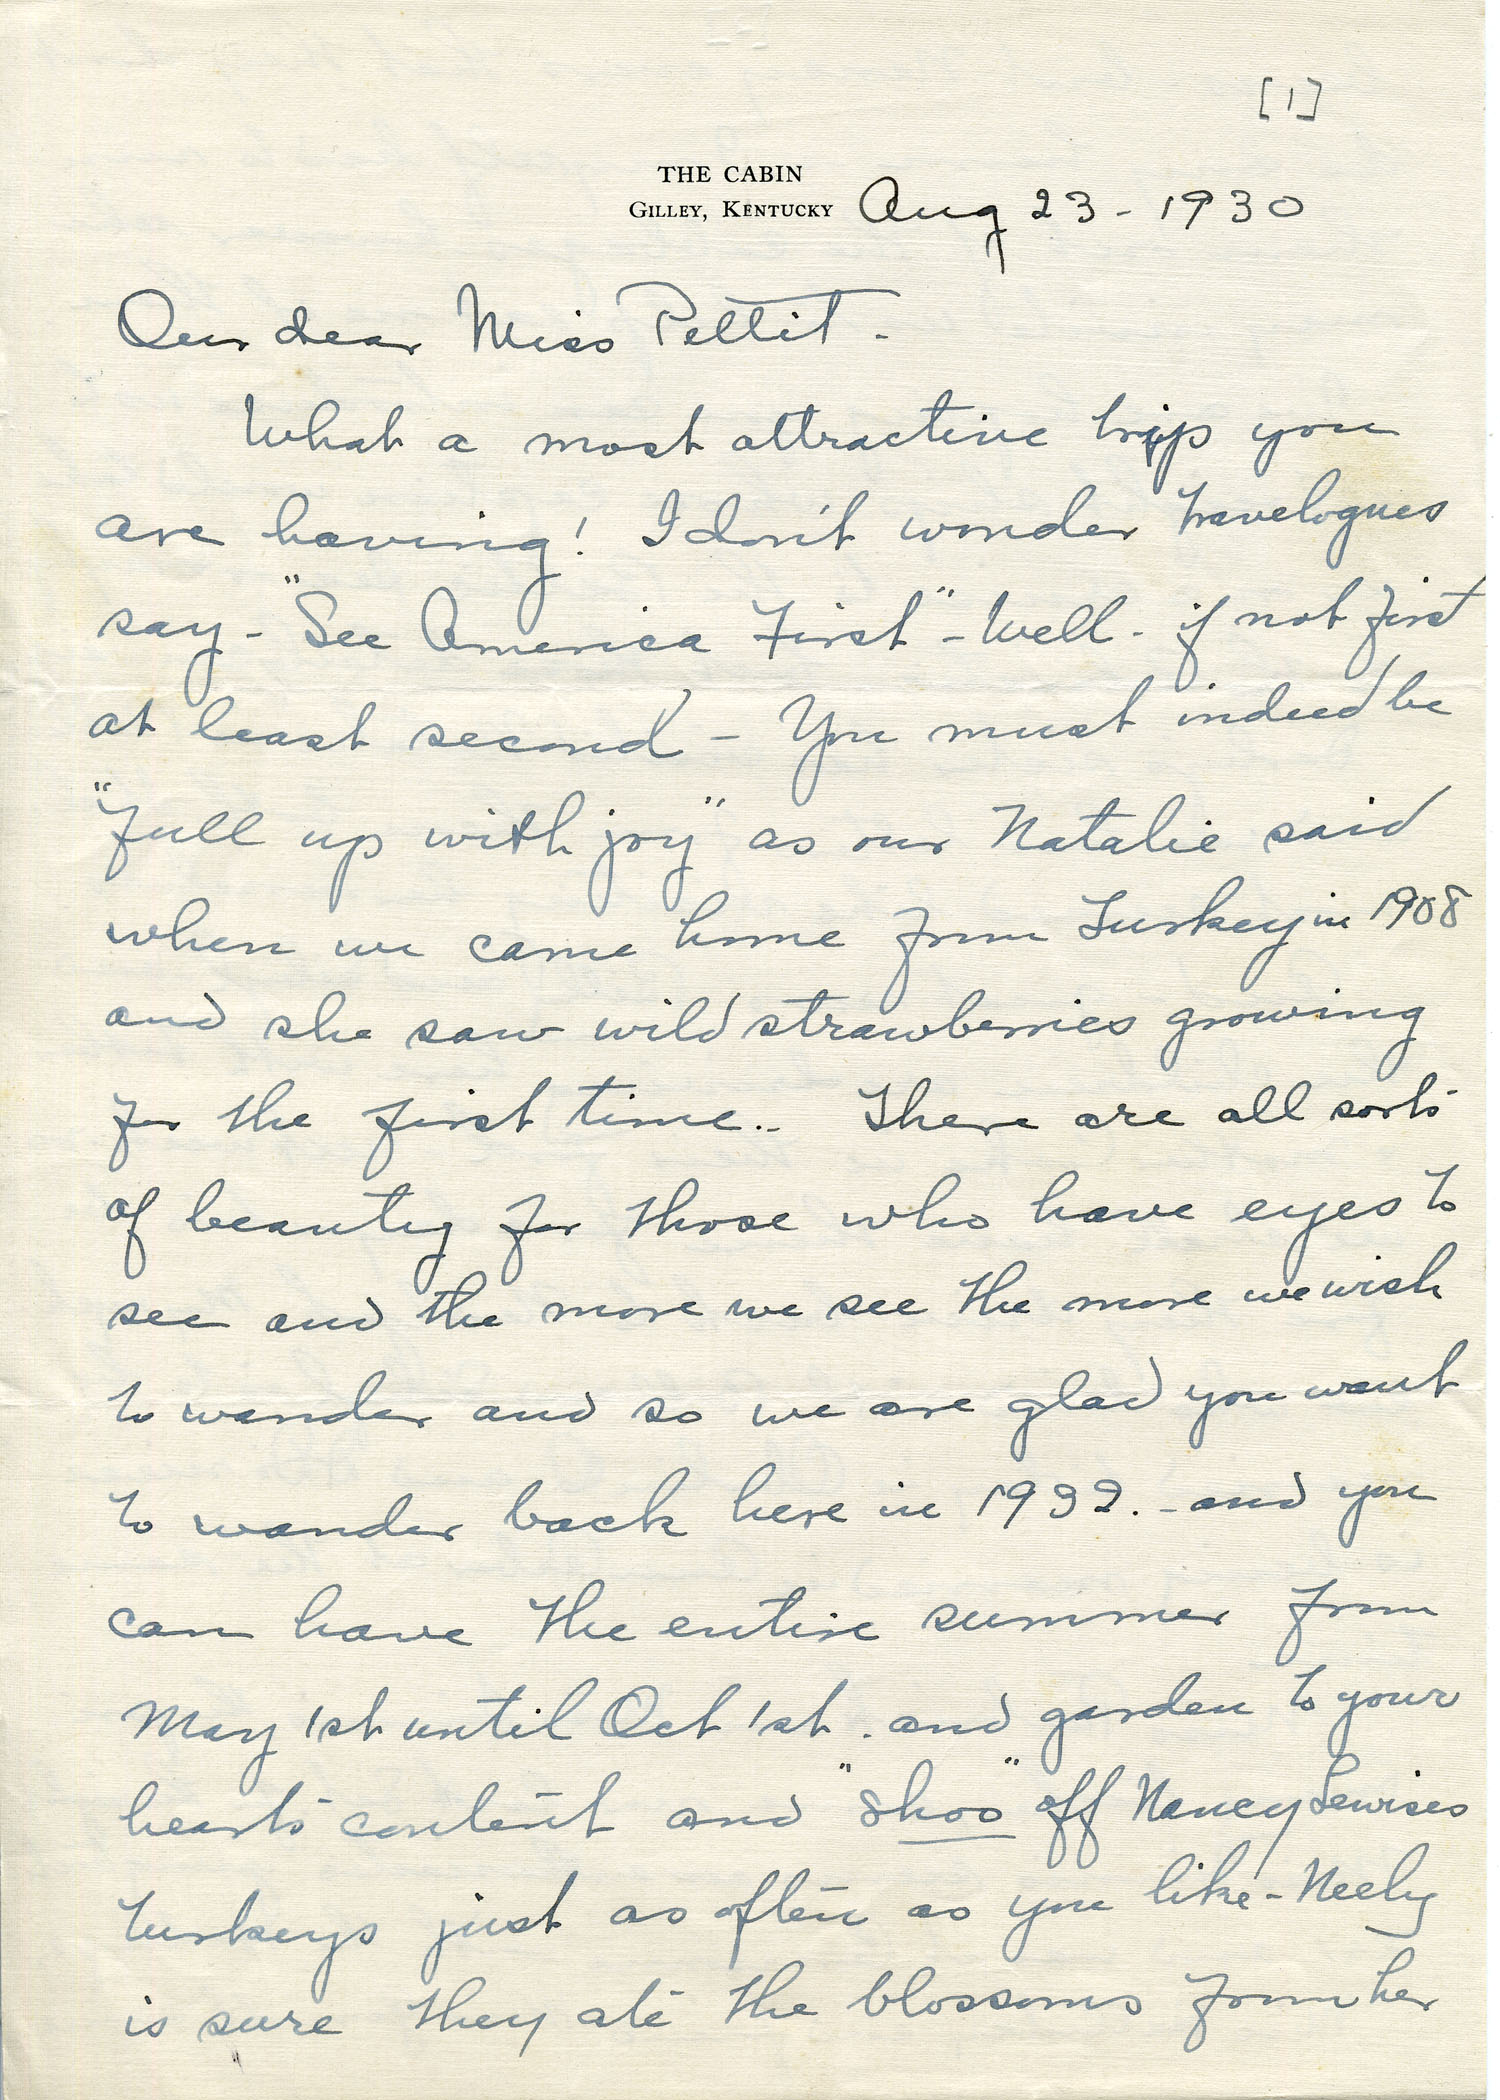 [1]
THE CABIN
GILLEY, KENTUCKY Aug 23 - 1930
Our dear Miss Pettit -
What a most attractive trip you
are having! I don't wonder travelogues
say - "See America First" - Well - if not first
at least second - You must indeed be
"full up with joy" as our Natalie said
when we came home from Turkey in 1908
and she saw wild strawberries growing
for the first time.. There are all sorts
of beauty for those who have eyes to
see and the more we see the more we wish
to wander and so we are glad you want
to wander back here in 1932. - and you
can have the entire summer from
May 1st until Oct 1st. and garden to your
heart's content and "shoo" off Nancy Lewises
turkeys just as often as you like - Neely
is sure they ate the blossoms from her